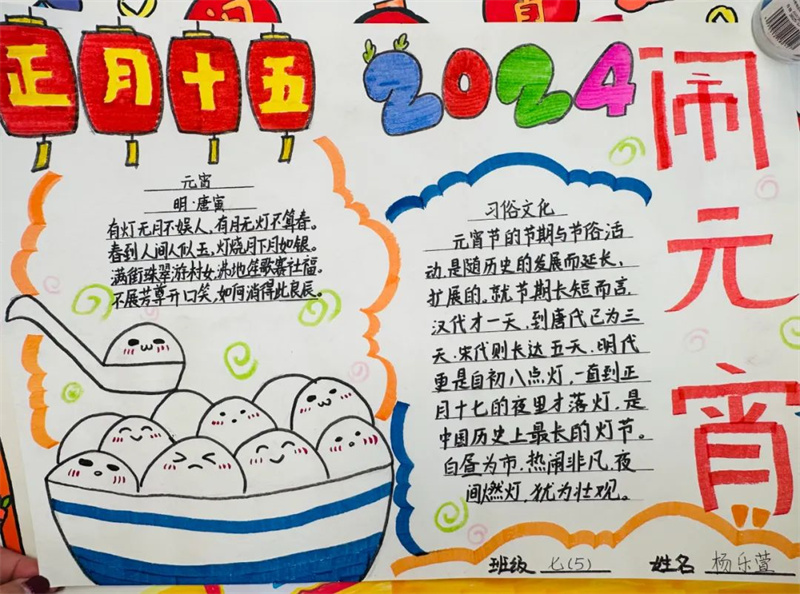 正月十五
2024
闹元宵
元宵
明·唐寅
有灯无月不娱人，有月无灯不算春。
春到人间人似玉，灯烧月下月如银。
满街珠翠游村女，沸地笙歌赛社福。
不展芳尊开口笑，如何消得此良辰。
习俗文化
元宵节的节期与节俗活
动，是随历史的发展而延长，
扩展的。就节期长短而言，
汉代才一天，到唐代已为三
天，宋代则长达五天，明代
更是自初八点灯，一直到正
月十七的夜里才落灯，是
中国历史上最长的灯节。
白昼为市，热闹非凡，夜
间燃灯，犹为壮观。
班级 七(5) 姓名 杨乐萱